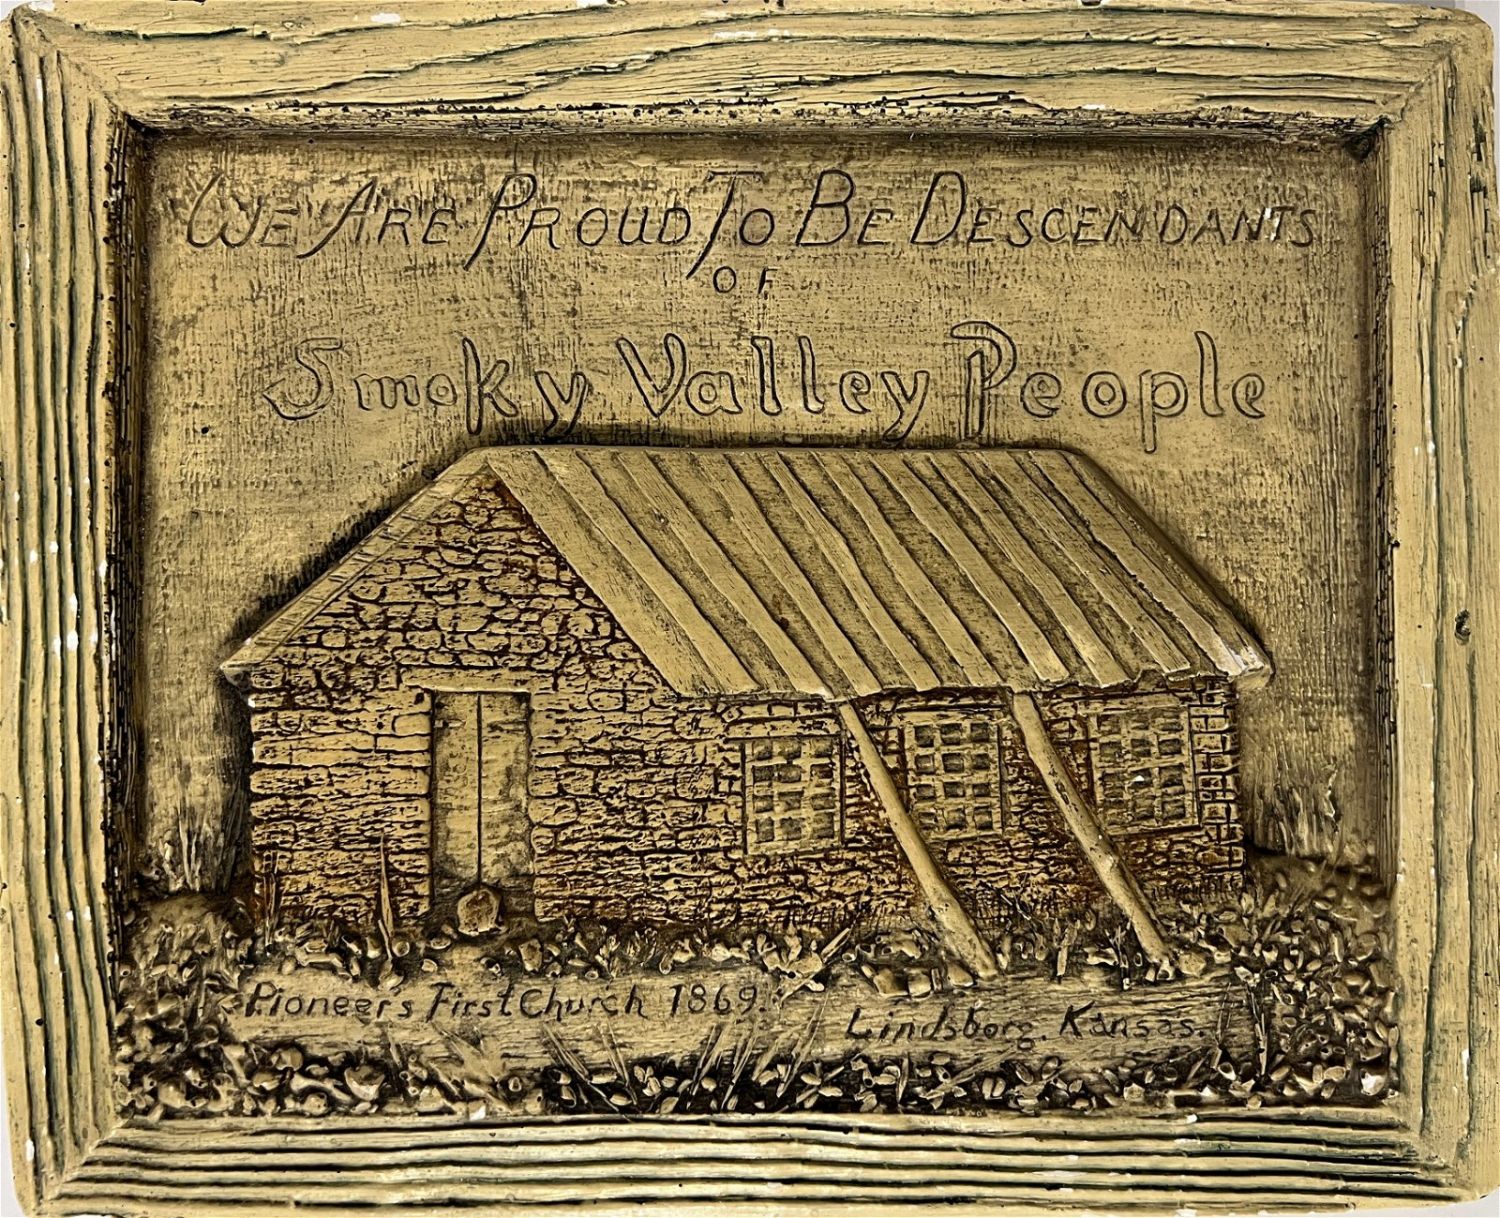 We Are Proud To Be Descendants
OF
Smoky Valley People
Pioneers First Church 1869.
Lindsborg. Kansas.